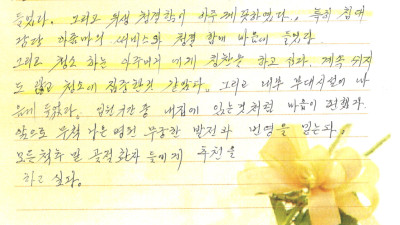 들었다. 그리고 위생 청결함이 아주 깨끗하였다., 특히 침대
담당 아줌마의 서비스와 청결 함에 마음이 들었다
그리고 청소 하는 아주머니 에게 칭찬을 하고 싶다. 계속 쉬지
도 않고 청소에 집중한것 같았다. 그리고 내부 부대시설이 나
들었다. 입원기간 중 내집에 있는것처럼 마음이 편했다.
앞으로 우척 나은 병원 무궁한 발전과 번영을 믿는다.
모든척추 및 관절환자 들에게 추천을
하고 싶다.